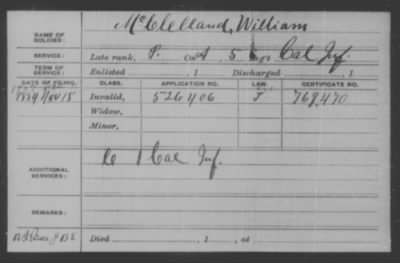 NAME OF SOLDIER: McClelland, William
SERVICE: Late rank, P. Co. A, 5 Reg't Cal Inf.
TERM OF SERVICE: Enlisted , 1 Discharged , 1
DATE OF FILING. CLASS. APPLICATION NO. LAW. CERTIFICATE NO.
1884 Nov 18 Invalid, 526406 J 769,470
Widow,
Minor,
ADDITIONAL SERVICES: C 1 Cal Inf.
REMARKS:
Died , 1 , at